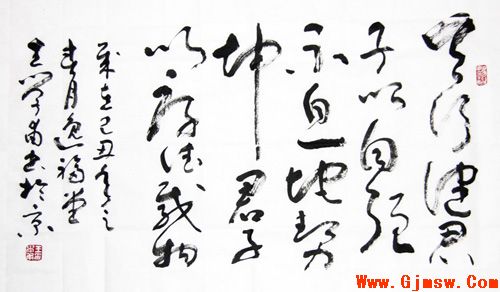 天行健君
子以自强
不息地势
坤君子
以厚德载物
岁在己丑年之
春月逸福堂
书於京
Www.Gjmsw.Com